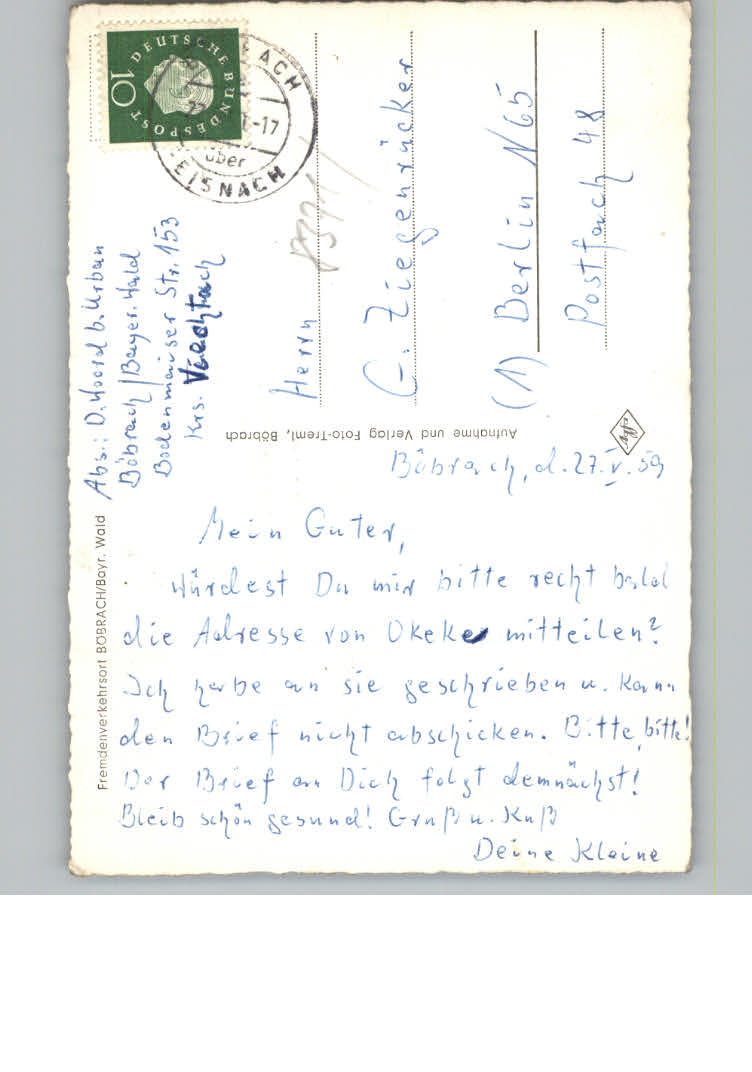 Abs.: D. Hoord b. Urban
Böbrach/Bayer. Wald
Bodenmaiser Str. 153
Krs. Viechtach
DEUTSCHE BUNDESPOST
10
-17
über
EISNACH
Herrn
G. Ziegenrücker
(1) Berlin N65
Postfach 48
Aufnahme und Verlag Foto-Treml, Böbrach
Fremdenverkehrsort BÖBRACH/Bayr. Wald
Böbrach, d. 27.V.59
Mein Guter,
Würdest Du mir bitte recht bald
die Adresse von Okeke mitteilen?
Ich habe an sie geschrieben u. kann
den Brief nicht abschicken. Bitte, bitte!
Der Brief an Dich folgt demnächst!
Bleib schön gesund! Gruß u. Kuß
Deine Kleine